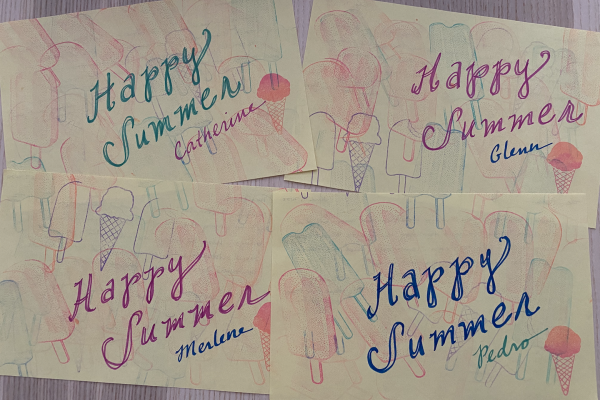 Happy
Summer
Catherine
Happy
Summer
Glenn
Happy
Summer
Merlene
Happy
Summer
Pedro